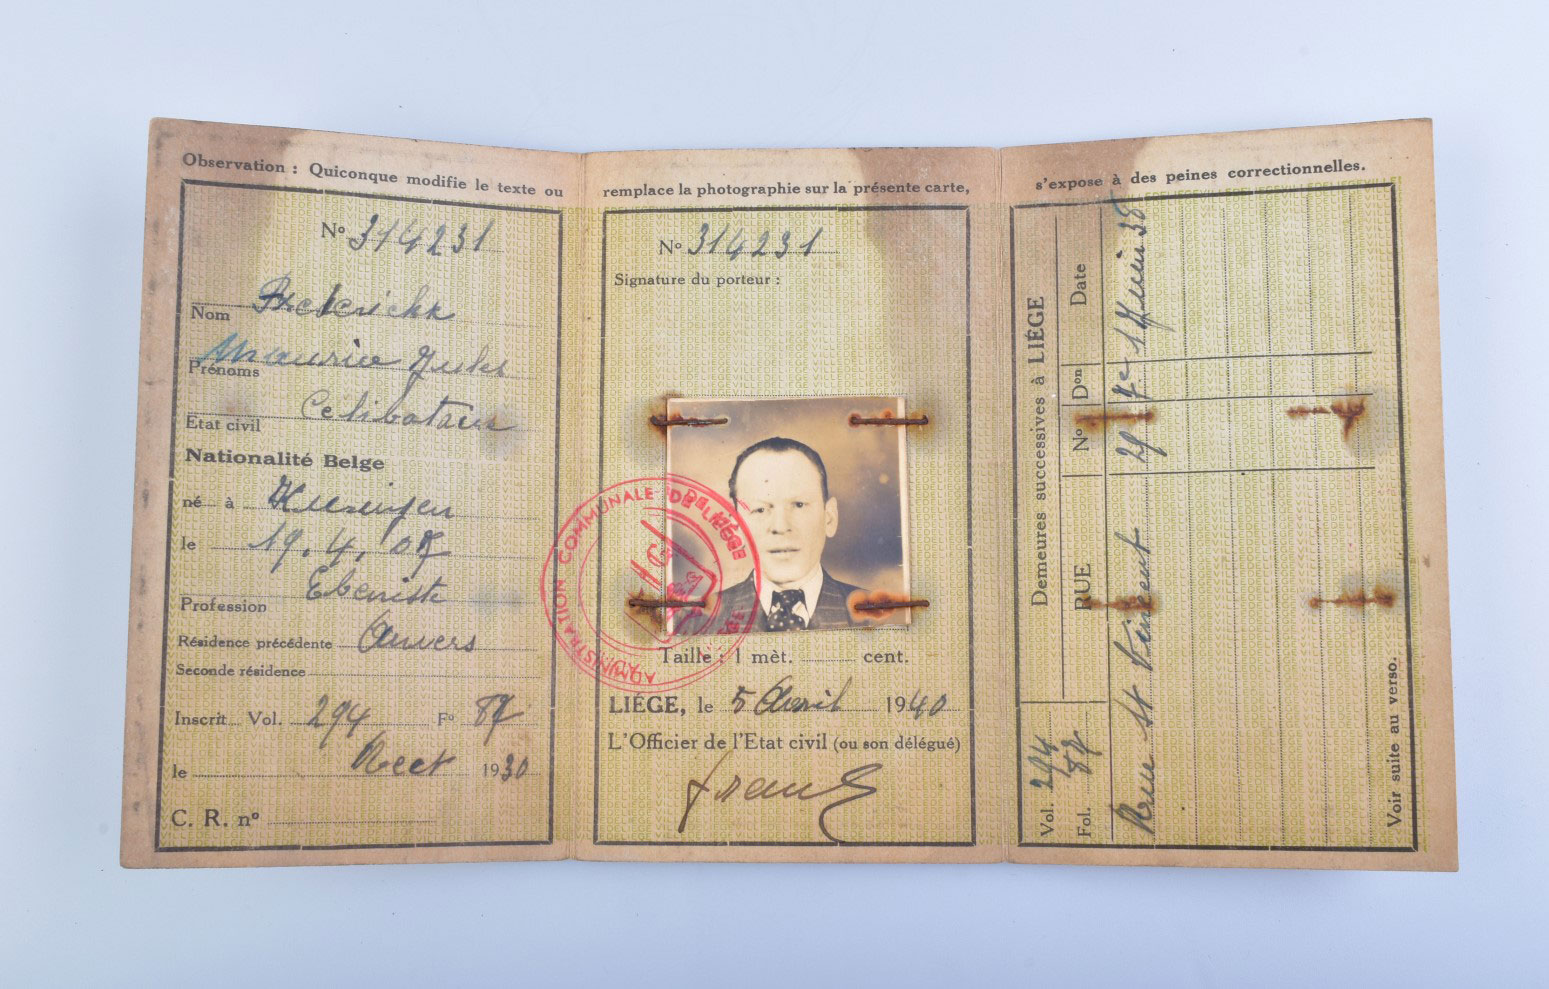 Observation : Quiconque modifie le texte ou
Nº 314231
Nom
Maurice Jules
Prénoms
Célibataire
Etat civil
Nationalité Belge
né à
le 19.4.08
Profession Ebeniste
Résidence précédente Anvers
Seconde résidence
Inscrit Vol. 294 Fº 87
le 1930
C. R. nº
remplace la photographie sur la présente carte,
Nº 314231
Signature du porteur :
ADMINISTRATION COMMUNALE DE LIÉGE
Taille : 1 mèt. cent.
LIÉGE, le 5 Avril 1940
L'Officier de l'Etat civil (ou son délégué)
s'expose à des peines correctionnelles.
Demeures successives à LIÉGE
Date
Don
Nº
RUE
Rue St Vincent 29
Vol. 294
Fol. 87
Voir suite au verso.